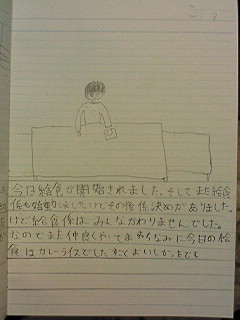 今日給食が開始されました。そしてまだ給食
係も始動しましたけどその後係決めがありました。
けど給食係はみんなかわりませんでした。
なのでまた仲良くやってます。ちなみに今日の給
食はカレーライスでした。